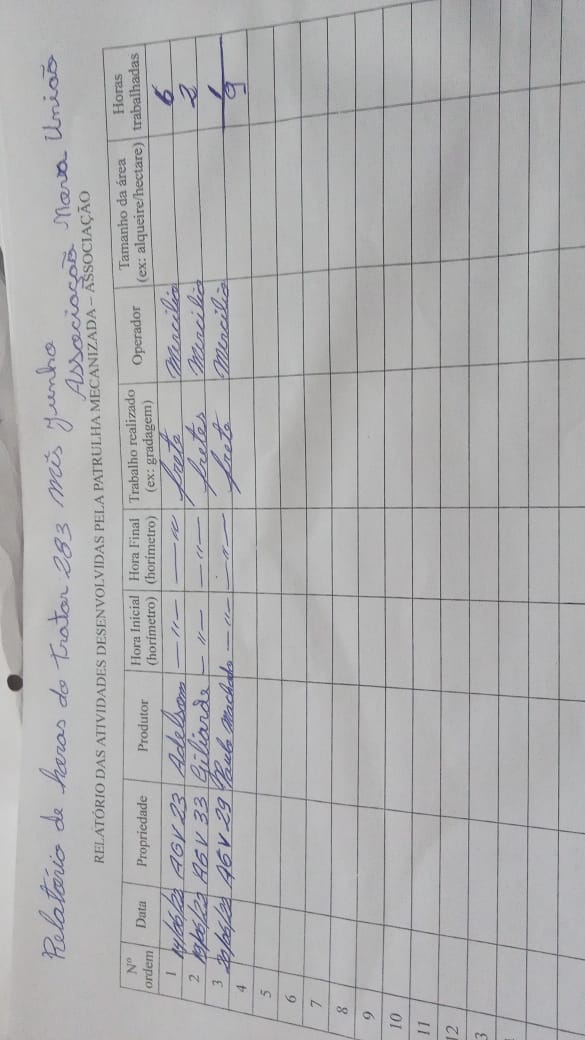 Relatório de horas do trator 283 mês Junho
Associação Nova União
RELATÓRIO DAS ATIVIDADES DESENVOLVIDAS PELA PATRULHA MECANIZADA – ASSOCIAÇÃO
Nº ordem Data Propriedade Produtor Hora Inicial (horímetro) Hora Final (horímetro) Trabalho realizado (ex: gradagem) Operador Tamanho da área (ex: alqueire/hectare) Horas trabalhadas
1 AGV 23 Adelsom — " — — " frete Mercilio 6
2 AGV 33 Giliarde — " — — " — fretes Mercilio 2
3 AGV 29 Paulo Machado — " — — " — frete Mercilio 1
4 9
5
6
7
8
9
10
11
12
3